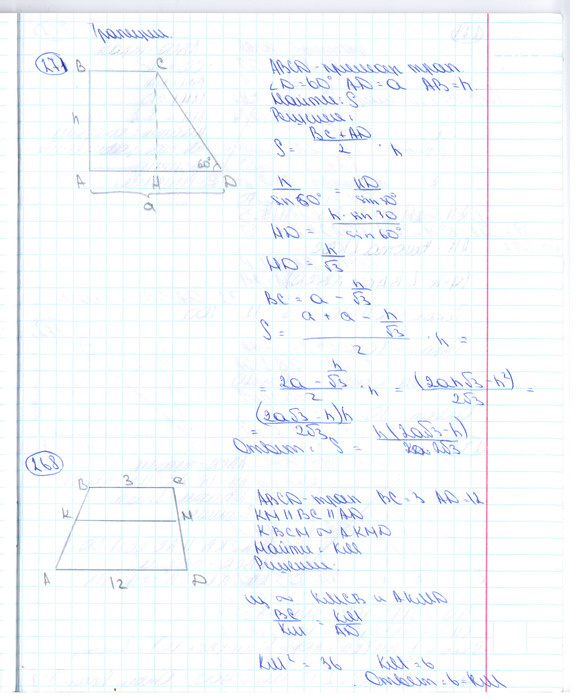 Трапеции.
271
B C
h
60°
A H D
a
ABCD - прямоуг. трап.
∠D=60° AD=a AB=h.
Найти: S
Решение:
S = (BC+AD)/2 · h
h/sin60° = HD/sin30°
HD = h·sin30/sin60°
HD = h/√3
BC = a - h/√3
S = (a + a - h/√3)/2 · h =
= (2a - h/√3)/2 · h = (2ah√3 - h²)/2√3 =
= (2a√3 - h)h/2√3
Ответ: S = h(2a√3-h)/2√3
268
B 3 C
K M
A 12 D
ABCD - трап BC=3 AD=12
KM || BC || AD
KBCM ~ AKMD
Найти: KM
Решение:
из ~ KMCB и AKMD
BC/KM = KM/AD
KM² = 36 KM=6
Ответ: 6=KM